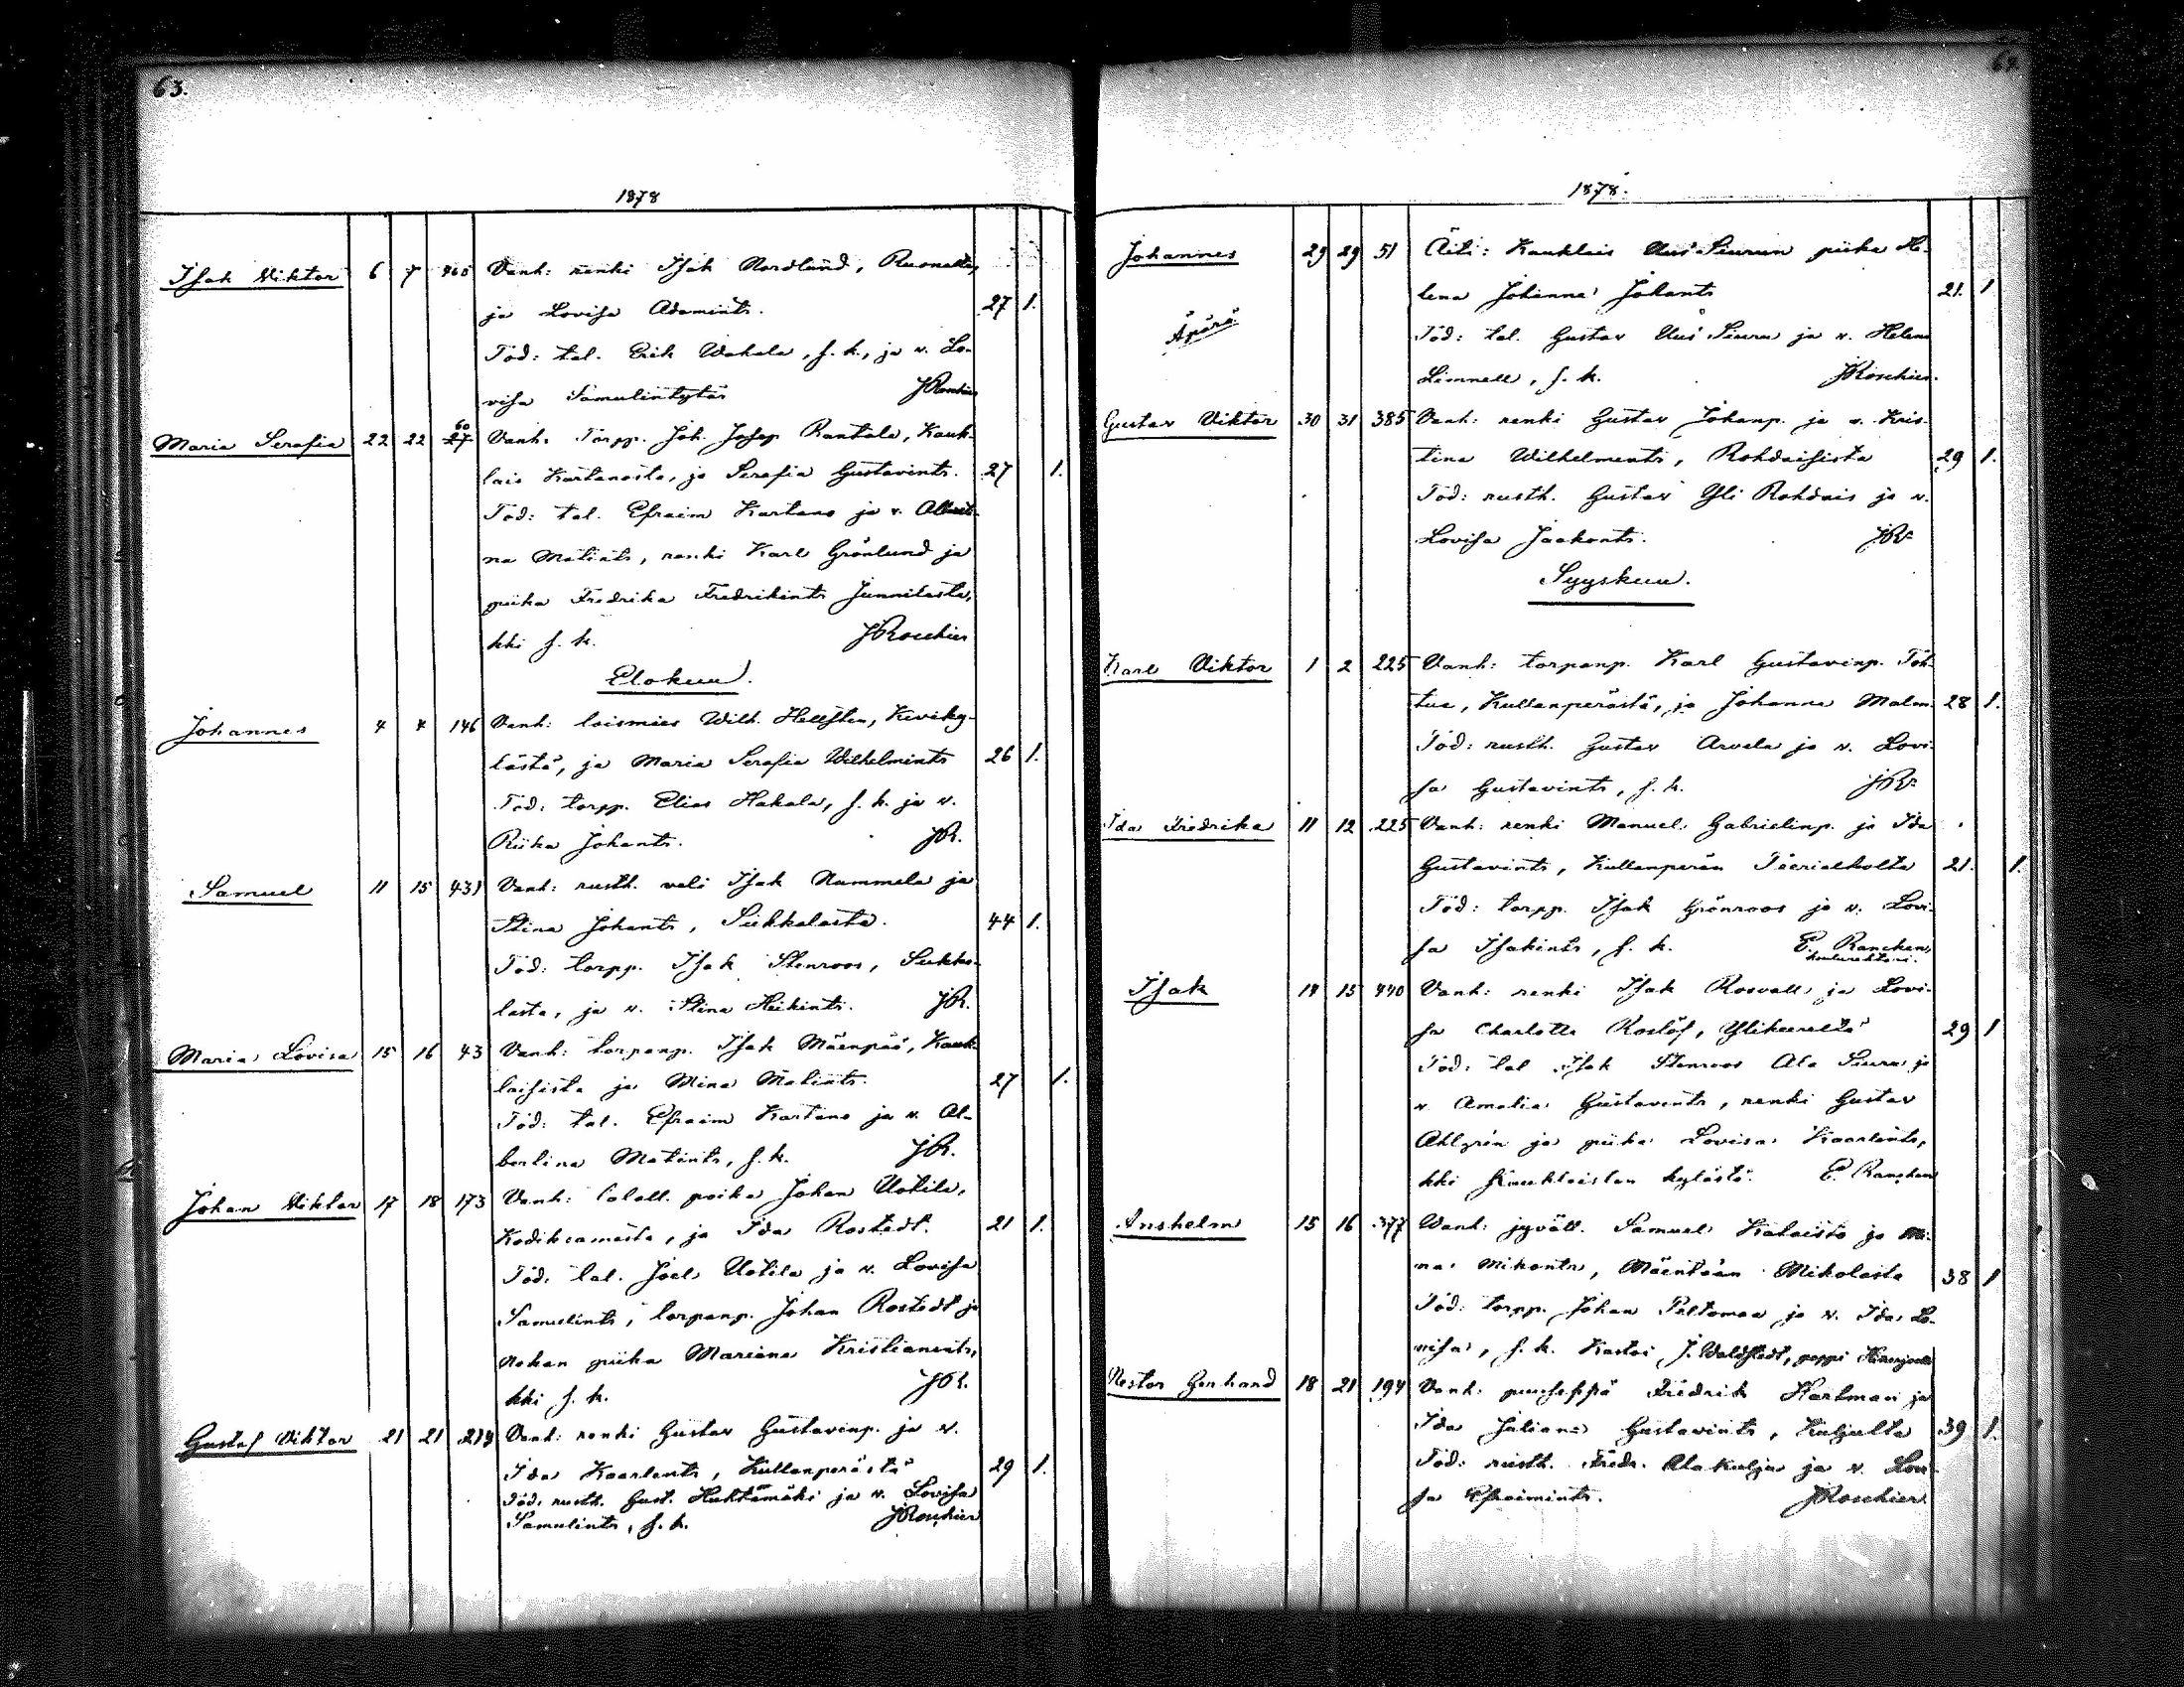 63.
1878
Isak Viktor 6 7 Vanh: renki Isak Nordlund,
ja Lovisa Adamints. 27 1.
Tod: tal. Erik Wakala, s. k., ja v. Lo-
visa Samulintytär JRoschier
Maria Serafia 22 22 60 27 Vanh: Torpp. Joh. Josep. Rantala, Kauk-
lais Kartanosta, ja Serafia Gustavints. 27 1.
Tod: tal. Efraim Kartano ja v. Alberti-
na Matints, renki Karl Grönlund ja
piika Fredrika Fredrikints Junnilasta,
kki s. k. JRoschier
Elokuu.
Johannes 4 4 146 Vanh: loismies Wilh. Hellsten, Kiviky-
lästä, ja Maria Serafia Wilhelmints 26 1.
Tod: torpp. Elias Hakala, s. k. ja v.
Riika Johants. JR.
Samuel 11 15 431 Vanh: rusth. veli Isak Nummela ja
Stina Johants, Sukkalasta. 44 1.
Tod: torpp. Isak Stenroos, Sukka-
lasta, ja v. Stina Heikints. JR.
Maria Lovisa 15 16 43 Vanh: torpanp. Isak Mäenpää, Kauk-
laisista ja Mina Matints. 27 1.
Tod: tal. Efraim Kartano ja v. Al-
bertina Matints, s. k. JR.
Johan Viktor 17 18 173 Vanh: taloll. poika Johan Uotila,
Kodiksamista, ja Ida Rostedt. 21 1.
Tod. tal. Joel Uotila ja v. Lovisa
Samulints, torpanp. Johan Rostedt ja
piika Mariana Kristianints,
kki s. k. JR.
Gustaf Viktor 21 21 219 Vanh: renki Gustav Gustavinp. ja v.
Ida Kaarlonts, Kullanperästä 29 1.
Tod. rusth. Gust. Huhtämäki ja v. Lovisa
Samulints, s. k. JRoschier
64.
1878.
Johannes 29 29 51 Äiti: Kauklais Uus Seurun piika He-
lena Johanna Johants 21. 1
Äpärä Tod: tal. Gustav Uus Seuru ja v. Helena
Limnell, s. k. JRoschier.
Gustav Viktor 30 31 385 Vanh: renki Gustav Johanp. ja v. Kris-
tina Wilhelmints, Rohdaisista 29 1.
Tod: rusth. Gustav Yli Rohdais ja v.
Lovisa Jaakonts. JRr
Syyskuu.
Karl Viktor 1 2 225 Vanh: torpanp. Karl Gustavinp. Töh-
tua, Kullanperästä, ja Johanna Malm. 28 1.
Tod: rusth. Gustav Arvela ja v. Lovi-
sa Gustavints, s. k. JRr
Ida Fredrika 11 12 225 Vanh: renki Manuel Gabrielinp. ja Ida
Gustavints, Kullanperän 21. 1.
Tod: torpp. Isak Grönroos ja v. Lovi-
sa Isakints, s. k. E. Rancken
Isak 14 15 440 Vanh: renki Isak Rosvall ja Lovi-
sa Charlotta Roslöf, 29 1
Tod: tal Isak Stenroos Ala Seuru ja
v. Amalia Gustavints, renki Gustav
Ahlgrén ja piika Lovisa Kaarlonts,
kki Kauklaisten kylästä. E. Rancken
Anshelm 15 16 377 Vanh: jyväll. Samuel Kataisto ja Mi-
na Mikonts, Mäentään Mikolasta 38 1
Tod: torpp. Johan Peltomaa ja v. Ida Lo-
visa, s. k. Kastoi J. Waldstedt, pappi
Nestor Gerhard 18 21 194 Vanh: puuseppä Fredrik Hartman ja
Ida Juliana Gustavints, Kuljulta 39 1.
Tod: rusth. Fredr. Ala Kulju ja v. Lovi-
sa Efraimints. JRoschier